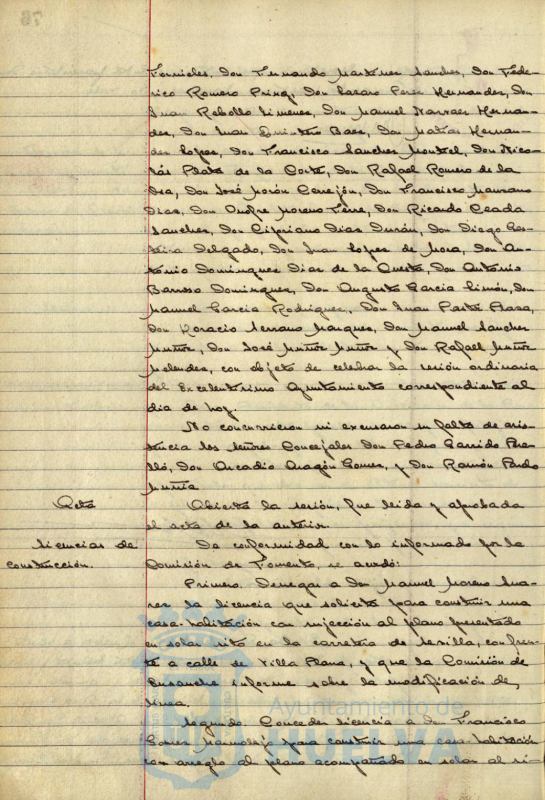 76
Fornieles, Don Fernando Martinez Sanchez, Don Fede-
rico Romero Pring, Don Lazaro Perez Hernandez, Don
Juan Rebollo Jimenez, Don Manuel Narvaez Hernan-
dez, Don Juan Quintero Baez, Don Matias Hernan-
dez Lopez, Don Francisco Sanchez Montiel, Don Nico-
lás Plata de la Corte, Don Rafael Romero de la
Don José Morón Cerrejón, Don Francisco Manzano
Dias, Don Onofre Moreno Don Ricardo
Sanchez, Don Cipriano Dias Durán, Don Diego
Delgado, Don Juan Lopez de Mora, Don An-
tonio Dominguez Dias de la Cuesta, Don Antonio
Barroso Dominguez, Don Augusto Garcia Simón, Don
Manuel Garcia Rodriguez, Don Juan Plaza,
Don Horacio Serrano Marquez, Don Manuel Sanchez
Muñoz, Don José Muñoz Muñoz y Don Rafael Muñoz
Melendez, con objeto de celebrar la sesión ordinaria
del Excelentisimo Ayuntamiento correspondiente al
dia de hoy.
No concurrieron ni excusaron su falta de asis-
tencia los Señores Concejales Don Pedro Garrido Pere-
lló, Don Arcadio Aragón Gomez, y Don Ramón Pardo
Acta
Abierta la sesión, fue leida y aprobada
el acta de la anterior.
Licencias de
construcción.
De conformidad con lo informado por la
Comisión de Fomento, se acordó:
Primero. Denegar a Don Manuel Moreno Sua-
rez la licencia que solicita para construir una
casa-habitación con sujección al plano presentado
en solar sito en la carretera de Sevilla, con fren-
te a calle de Villa Plana, y que la Comisión de
Ensanche informe sobre la modificación de
linea.
Segundo. Conceder licencia a don Francisco
Gomez Marmolejo para construir una casa-habitación
con arreglo al plano acompañado en solar al si-
Ayuntamiento de
HUELVA